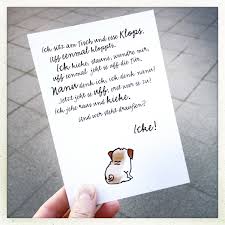 Ick sitz am Tisch und esse Klops,
Uff eenmal kloppts.
Ick kieke, staune, wundre mir,
uff eenmal jeht se uff die Tür,
Nanu denk ick, ick denk nanu!
Jetzt jeht se uff, erst war se zu!
Ick jehe raus und kieke.
Und wer steht draußen?
Icke!